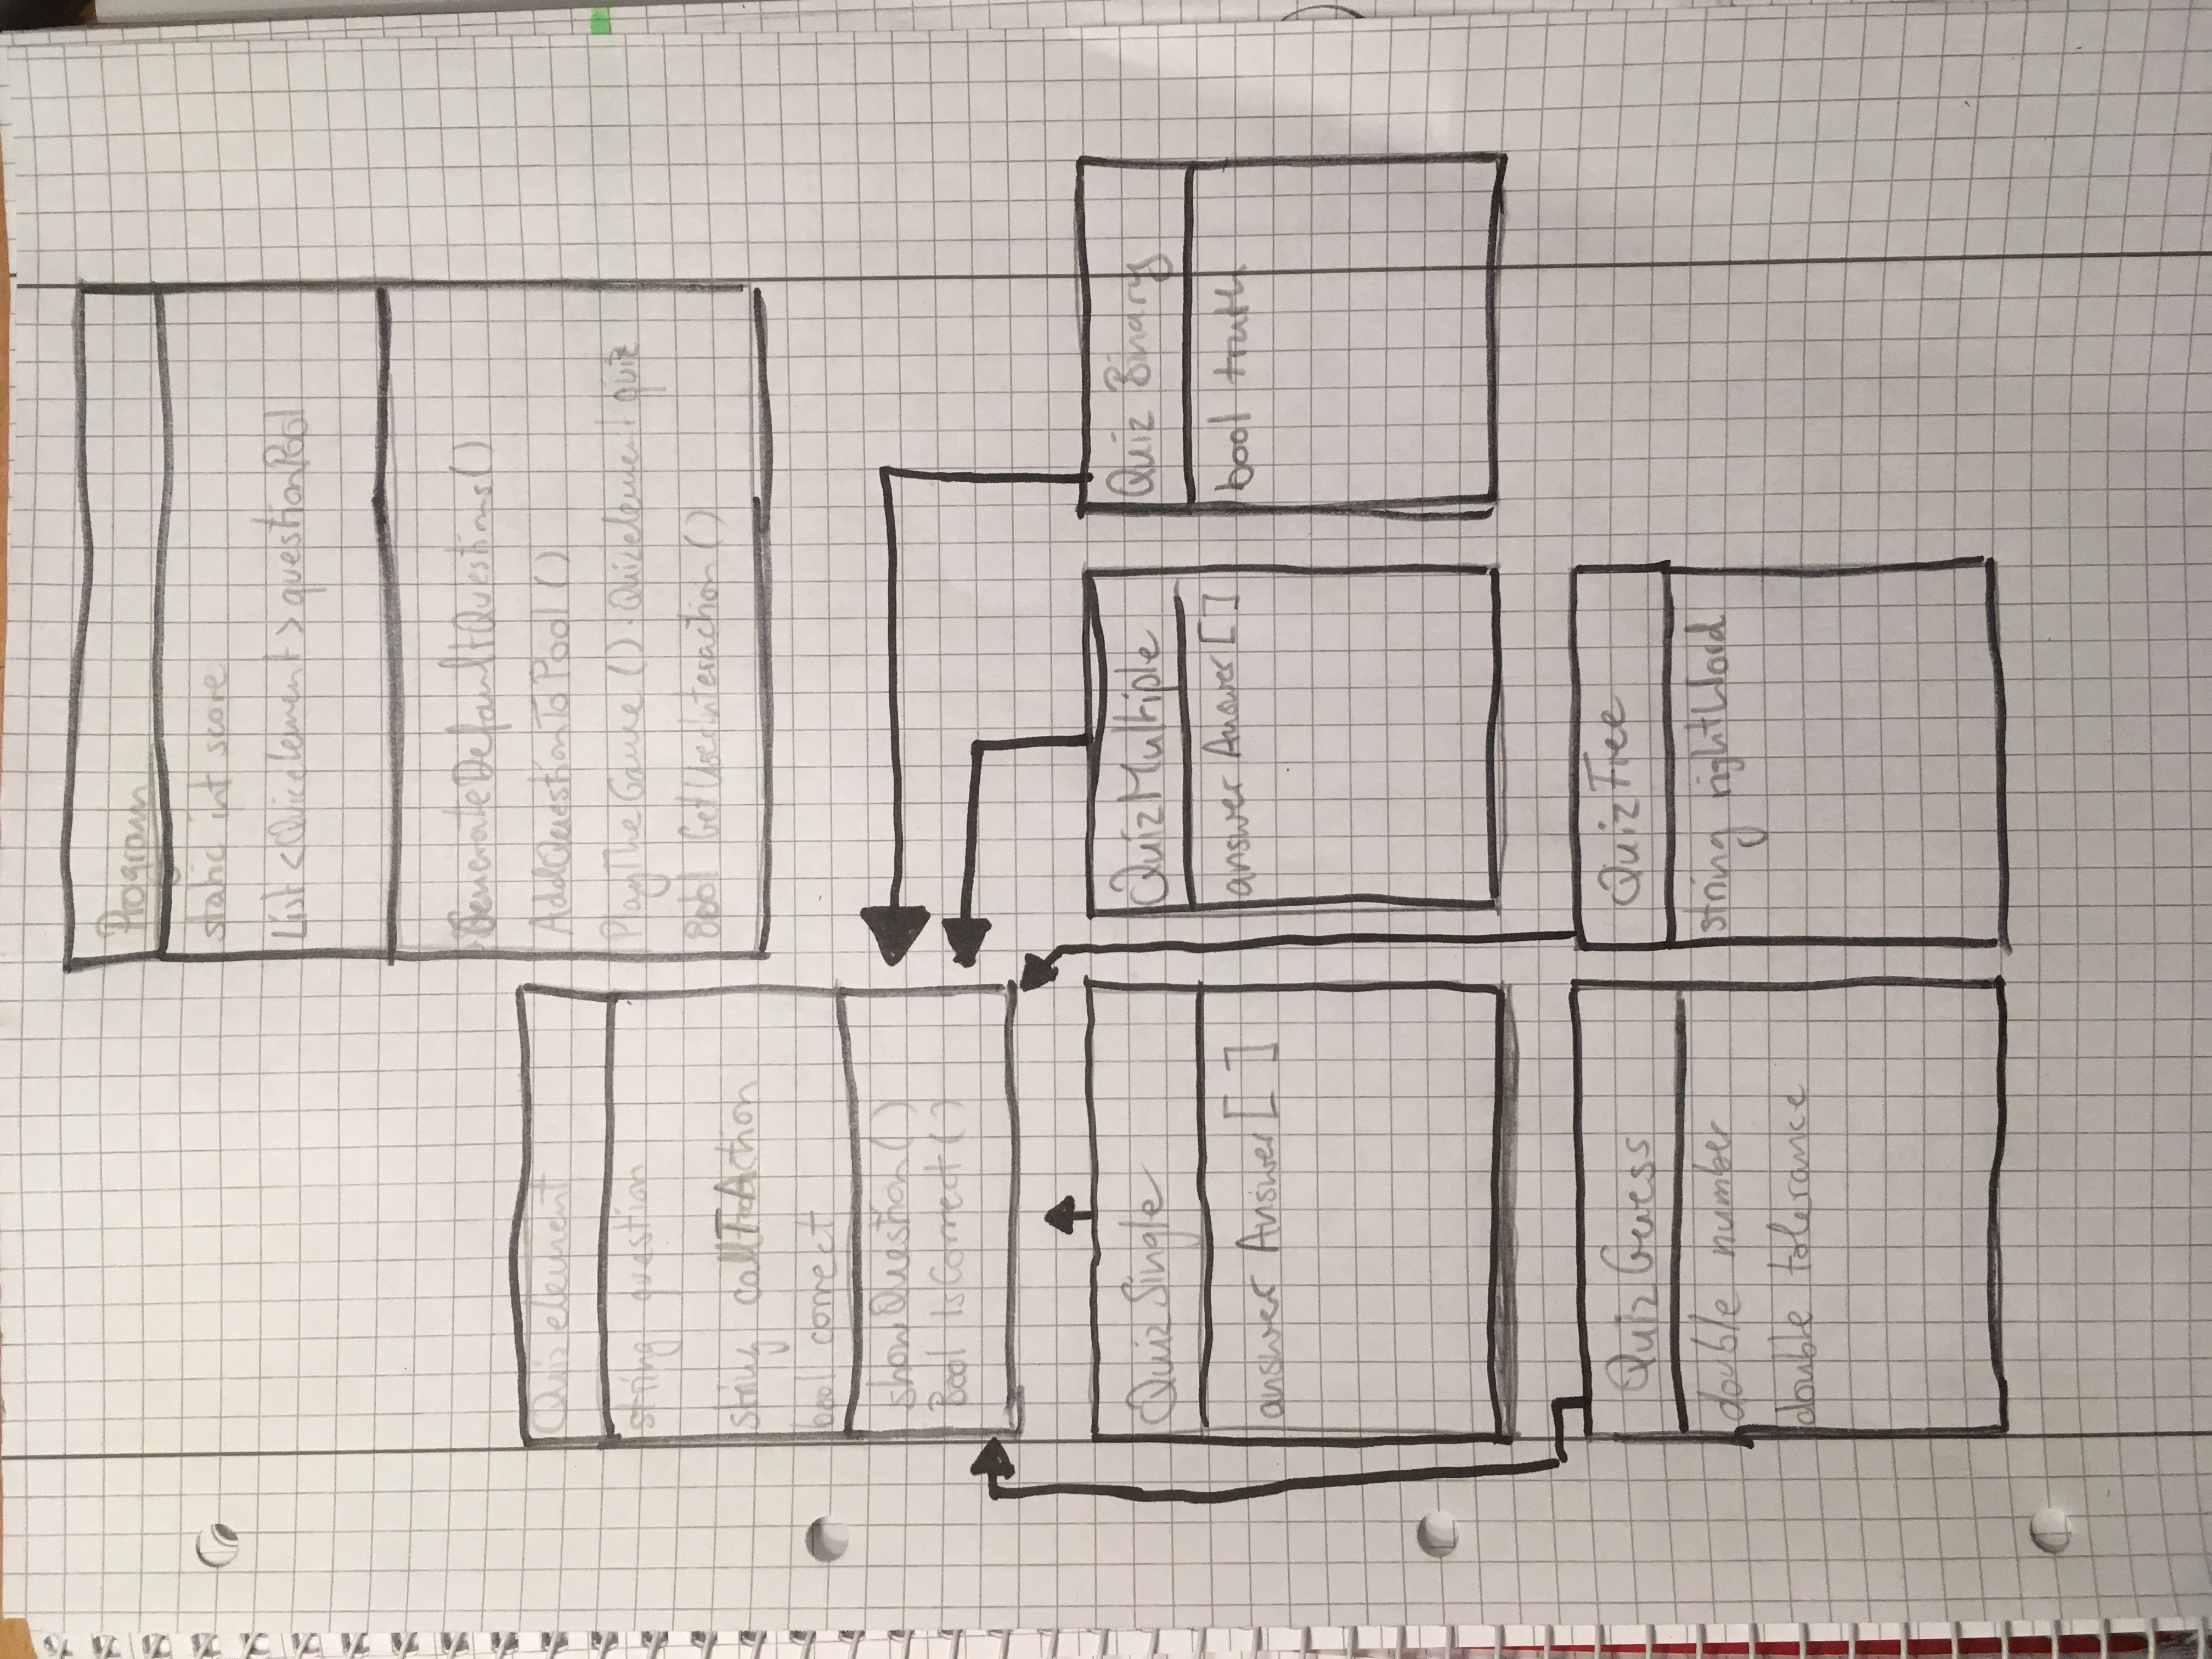 Program
static int score
List <Quizelement> questionPool
GenerateDefaultQuestions()
AddQuestionToPool ()
PlayTheGame () Quizelement quiz
Bool GetUserInteraction ()
Quizelement
string question
string callToAction
bool correct
showQuestion ()
Bool IsCorrect ()
QuizSingle
answer Answer [ ]
QuizMultiple
answer Answer [ ]
Quiz Binary
bool truth
QuizGuess
double number
double tolerance
QuizFree
string rightWord